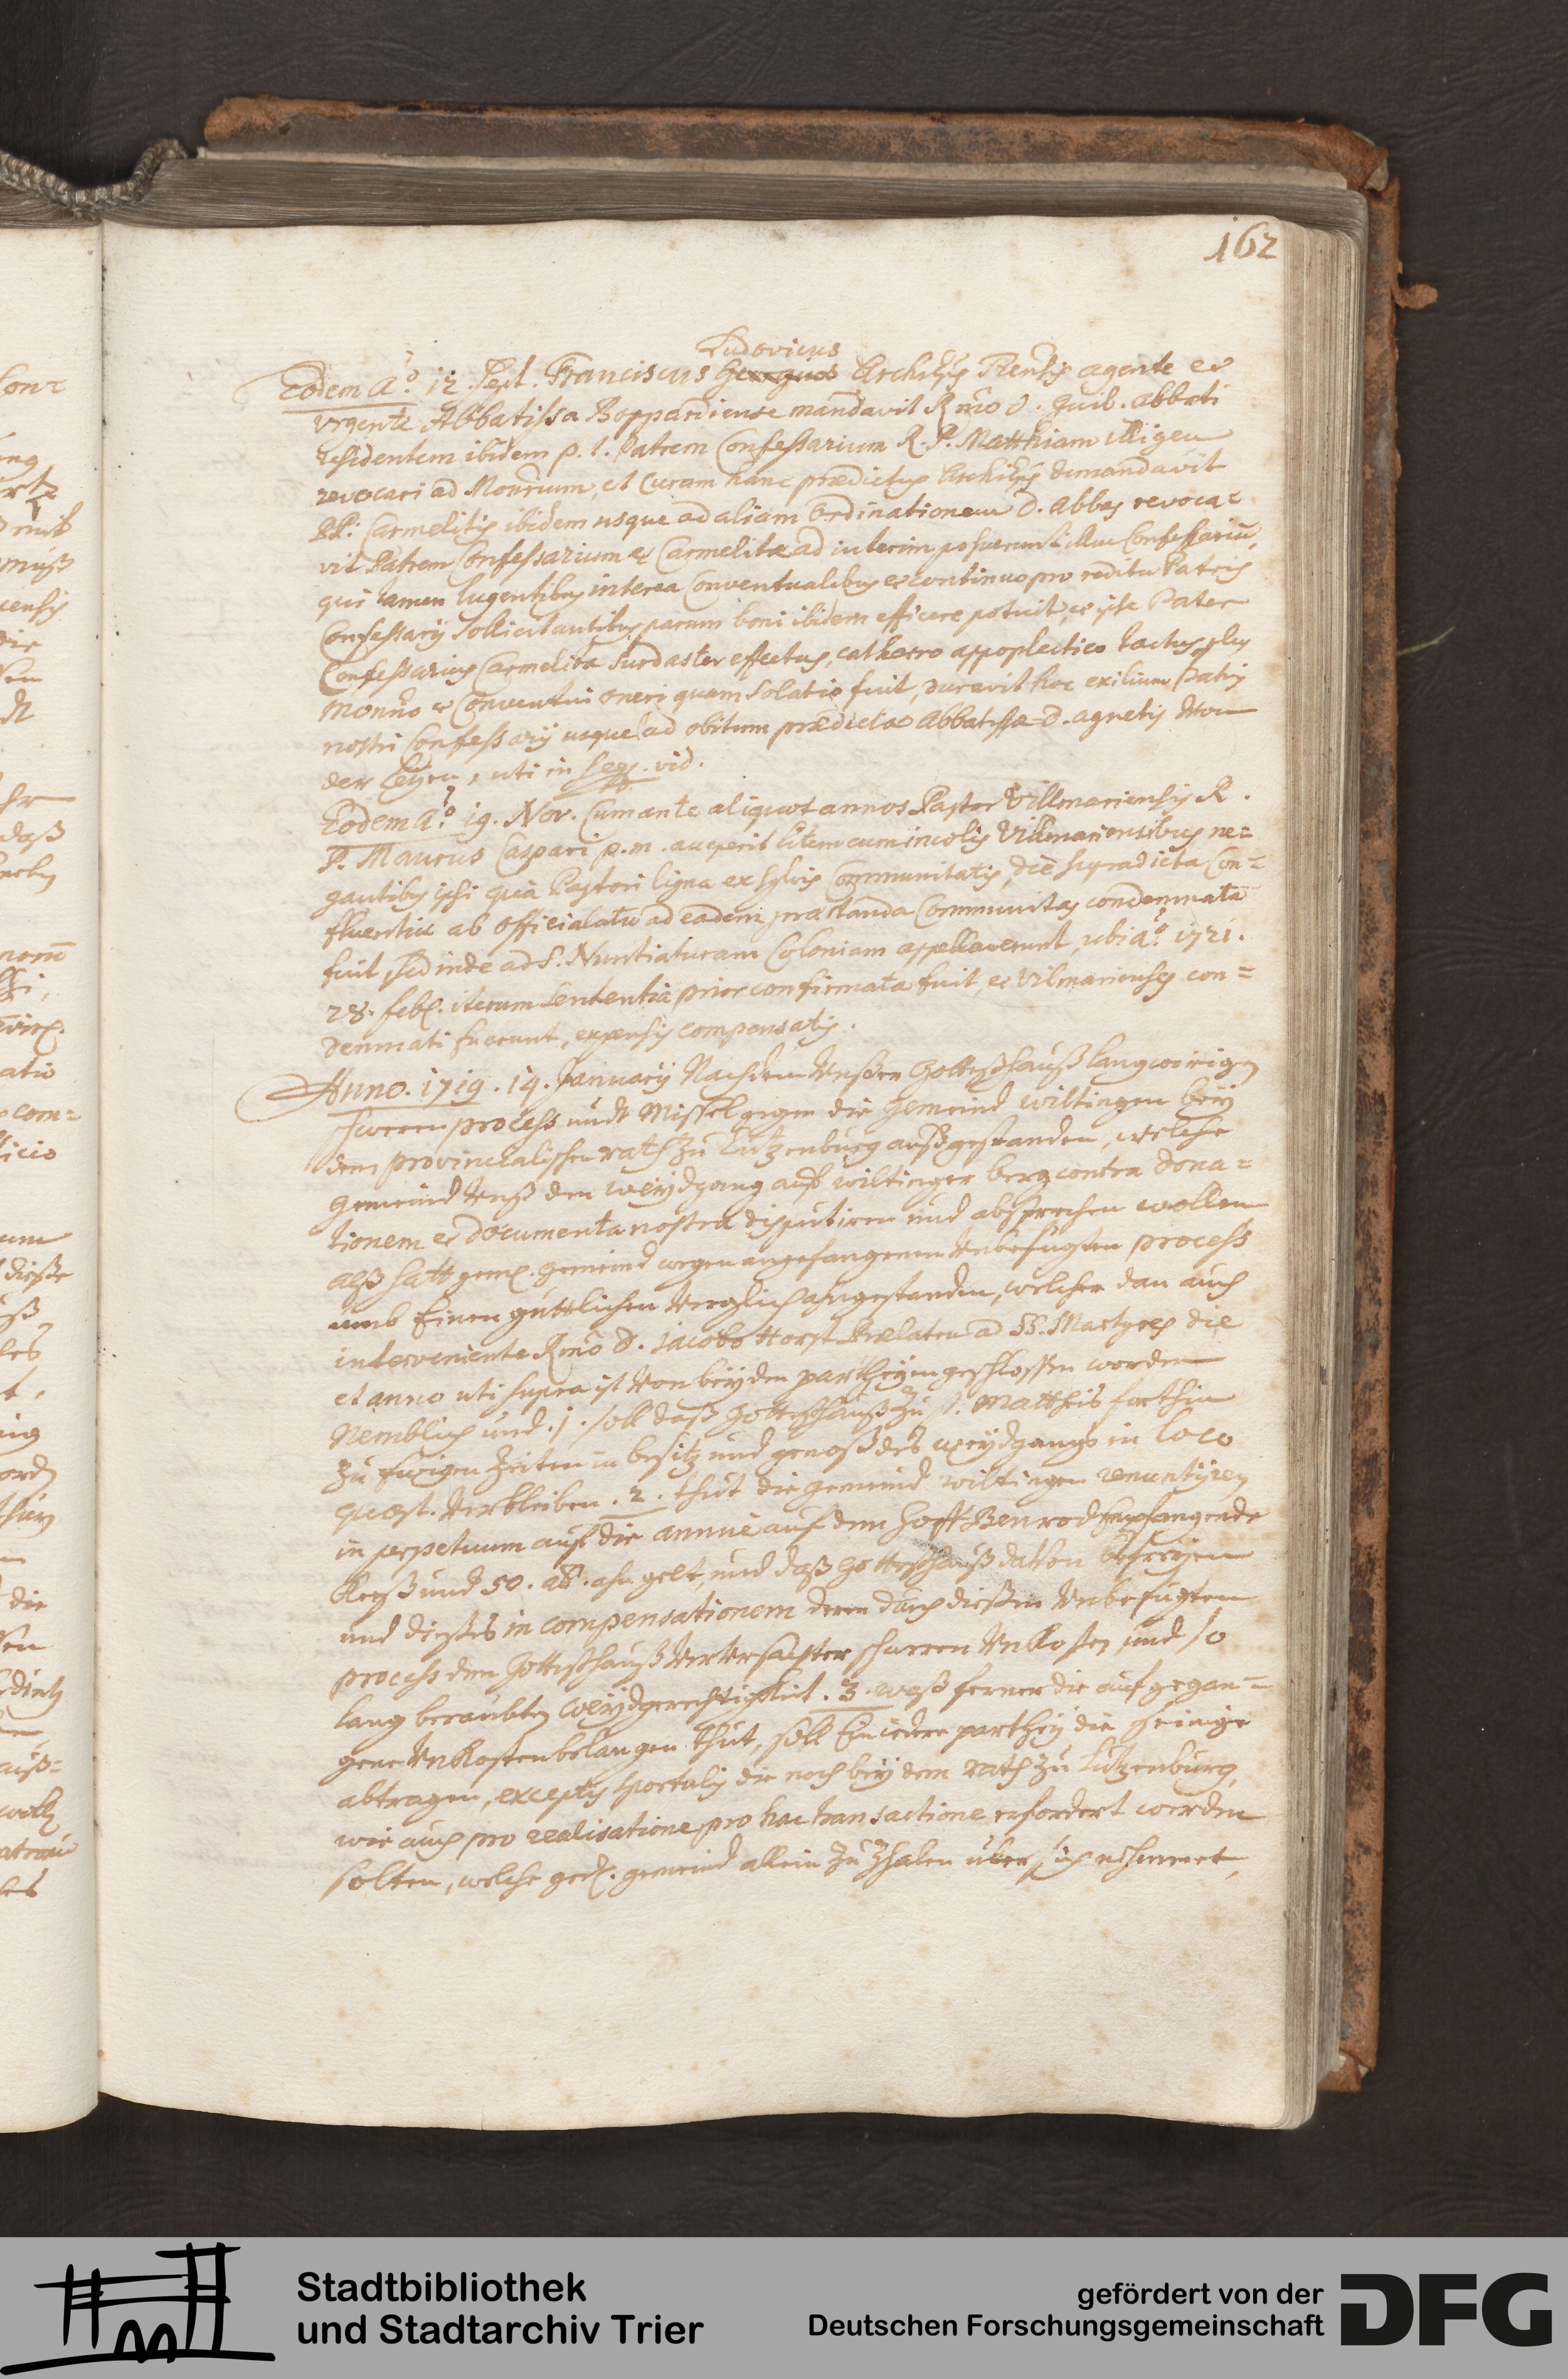 162
Ludovicus
Eodem Ao. 12. Sept. Franciscus Georgius Archiēps Trensis agente et
urgente Abbatissa Boppardiense mandavit Rmo D. Guil. abbati
residentem ibidem p. t. Patrem Confessarium R. P. Matthiam Illigen
revocari ad Monrium, et Curam hanc prædictus Archiēps demandavit
PP: Carmelitis ibidem usque ad aliam ordinationem D. Abbas revoca-
vit Patrem Confessarium et Carmelitæ ad interim posuerunt illuc Confessariū,
qui tamen lugentibus interea Conventualibus et continuo pro reditu Patris
Confessarij sollicitantibus parum boni ibidem efficere potuit, et ipse Pater
Confessarius Carmelita surdaster effectus, catharro appoplectico tactus, plus
Monrio et Conventui oneri quam solatio fuit, duravit hoc exilium Patris
nostri Confessarij usque ad obitum prædictæ Abbatissæ D. agnetis Von
der Leyen, uti in seqq. vid.
Eodem Ao. 19. Nov. Cum ante aliquot annos Pastor Villmariensis R.
P. Maurus Caspari p. m. ceperit litem cum incolis Villmariensibus ne=
gantibus ipsi quà Pastori ligna ex sylvis Communitatis, die supradicta Con=
fluentiæ ab officialatu ad eadem præstanda Communitas condemnata
fuit, sed inde ad S. Nuntiaturam Coloniam appellaverunt, ubi ao. 1721.
28. feb. iterum sententia prior confirmata fuit, et Vilmarienses con=
demnati fuerunt, expensis compensatis.
Anno. 1719. 14. Januarij Nachdem Unßer Gotteßhauß langwirigen
schweren process undt Missel gegen die Gemeind wiltingen beÿ
dem provincialischen rath zu Lutzenburg außgestanden, welche
Gemeind Unß den weÿdgang auf wiltinger berg contra dona=
tionem et documenta nostra disputiren und absprechen wollen
alß hatt gem. gemeind wegen angefangenen Unbefugten process
umb Einen güttlichen Verglich ahngestanden, welcher dan auch
interveniente Rmo D. Jacobo Horst Prælaten ad SS. Martyres die
et anno uti supra ist Von beÿden partheyen geschlossen worden
Nemblich und. 1. soll daß Gotteßhauß zu St. Matthis forthin
zu Ewigen Zeiten in besitz und genoß des weÿdgangs in loco
quæst. Verbleiben. 2. thut die Gemeind wiltingen renuntijren
in perpetuum auf die annue auf dem hoff Benrod Empfangende
und 50. ahn gelt, und daß Gotteßhauß davon befreÿen
und dießes in compensationem deren durch dießen Unbefugten
process dem Gotteßhauß Verursachter schwaren Unkosten und so
lang beraubten weÿdgerechtigkeit. 3. waß ferner die aufgegan=
gene Unkosten belangen thut, soll Ein iedere parthey die seinige
abtragen, exceptis sportulis die noch beÿ dem rath zu Lutzenburg,
wie auch pro realisatione pro hac transactione erfordert werden
solten, welche ged. gemeind allein zu Zhalen über sich nihmmet,
Stadtbibliothek
und Stadtarchiv Trier
gefördert von der
Deutschen Forschungsgemeinschaft
DFG